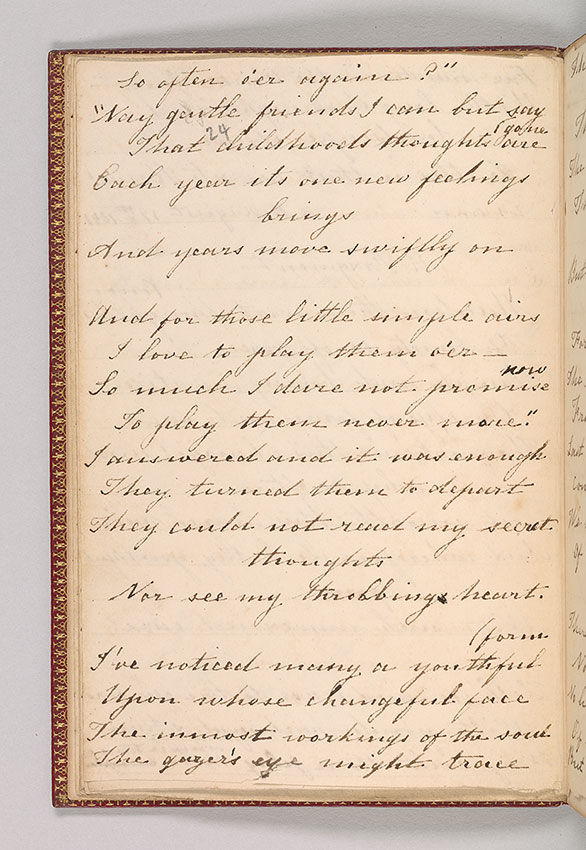 So often o'er again?"
"Nay gentle friends I can but say
(gone
24
That childhoods thoughts are
Each year its one new feelings
brings
And years move swiftly on
And for those little simple airs
I love to play them o'er —
now
So much I dare not promise
To play them never more."
I answered and it was enough
They turned them to depart
They could not read my secret
thoughts
Nor see my throbbing heart.
(form
I've noticed many a youthful
Upon whose changeful face
The inmost workings of the soul
The gazer's eye might trace